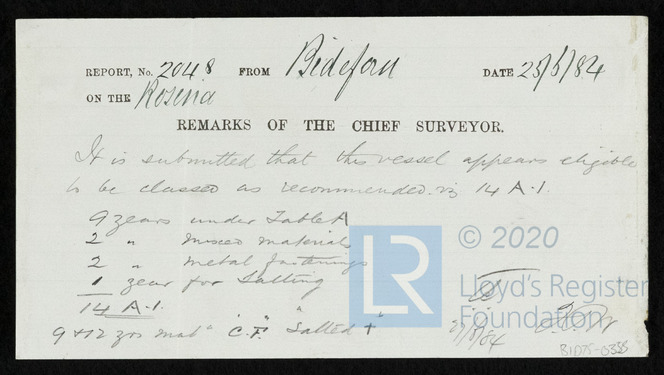 REPORT, No. 2048 FROM Bideford DATE 25/8/84
ON THE Rosina
REMARKS OF THE CHIEF SURVEYOR.
It is submitted that this vessel appears eligible
to be classed as recommended viz 14 A.1.
9 years under Table A
2 " mixed materials
2 " metal fastenings
1 year for Salting
14 A.1.
9 & 12 yrs mat^s "C.F." "Salted" +
LR
© 2020
Lloyd's Register
Foundation
27/8/84
BID75-0333